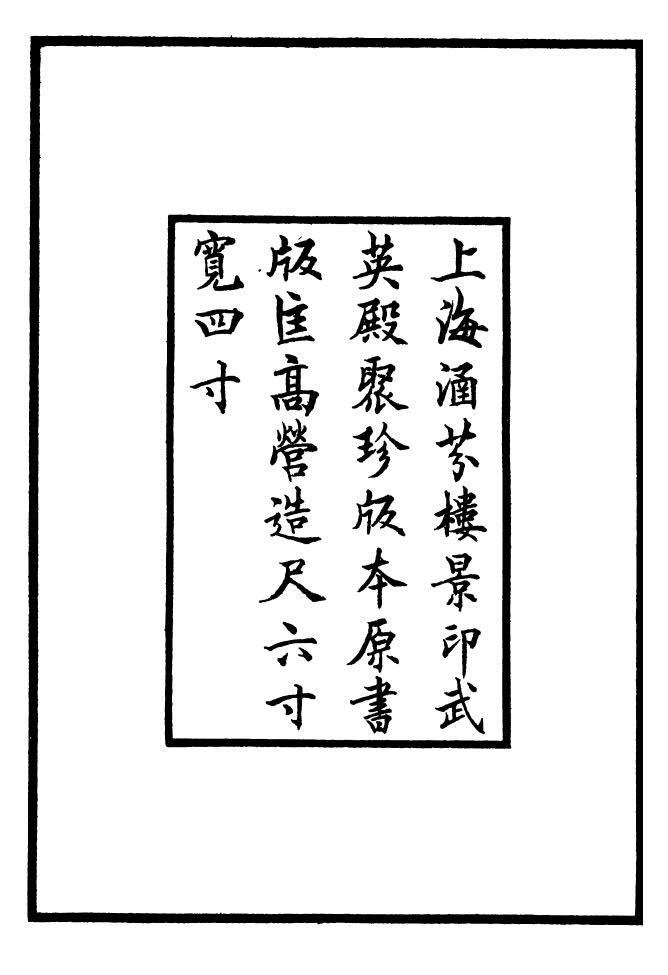 上海涵芬樓景印武
英殿聚珍版本原書
版匡高營造尺六寸
寬四寸